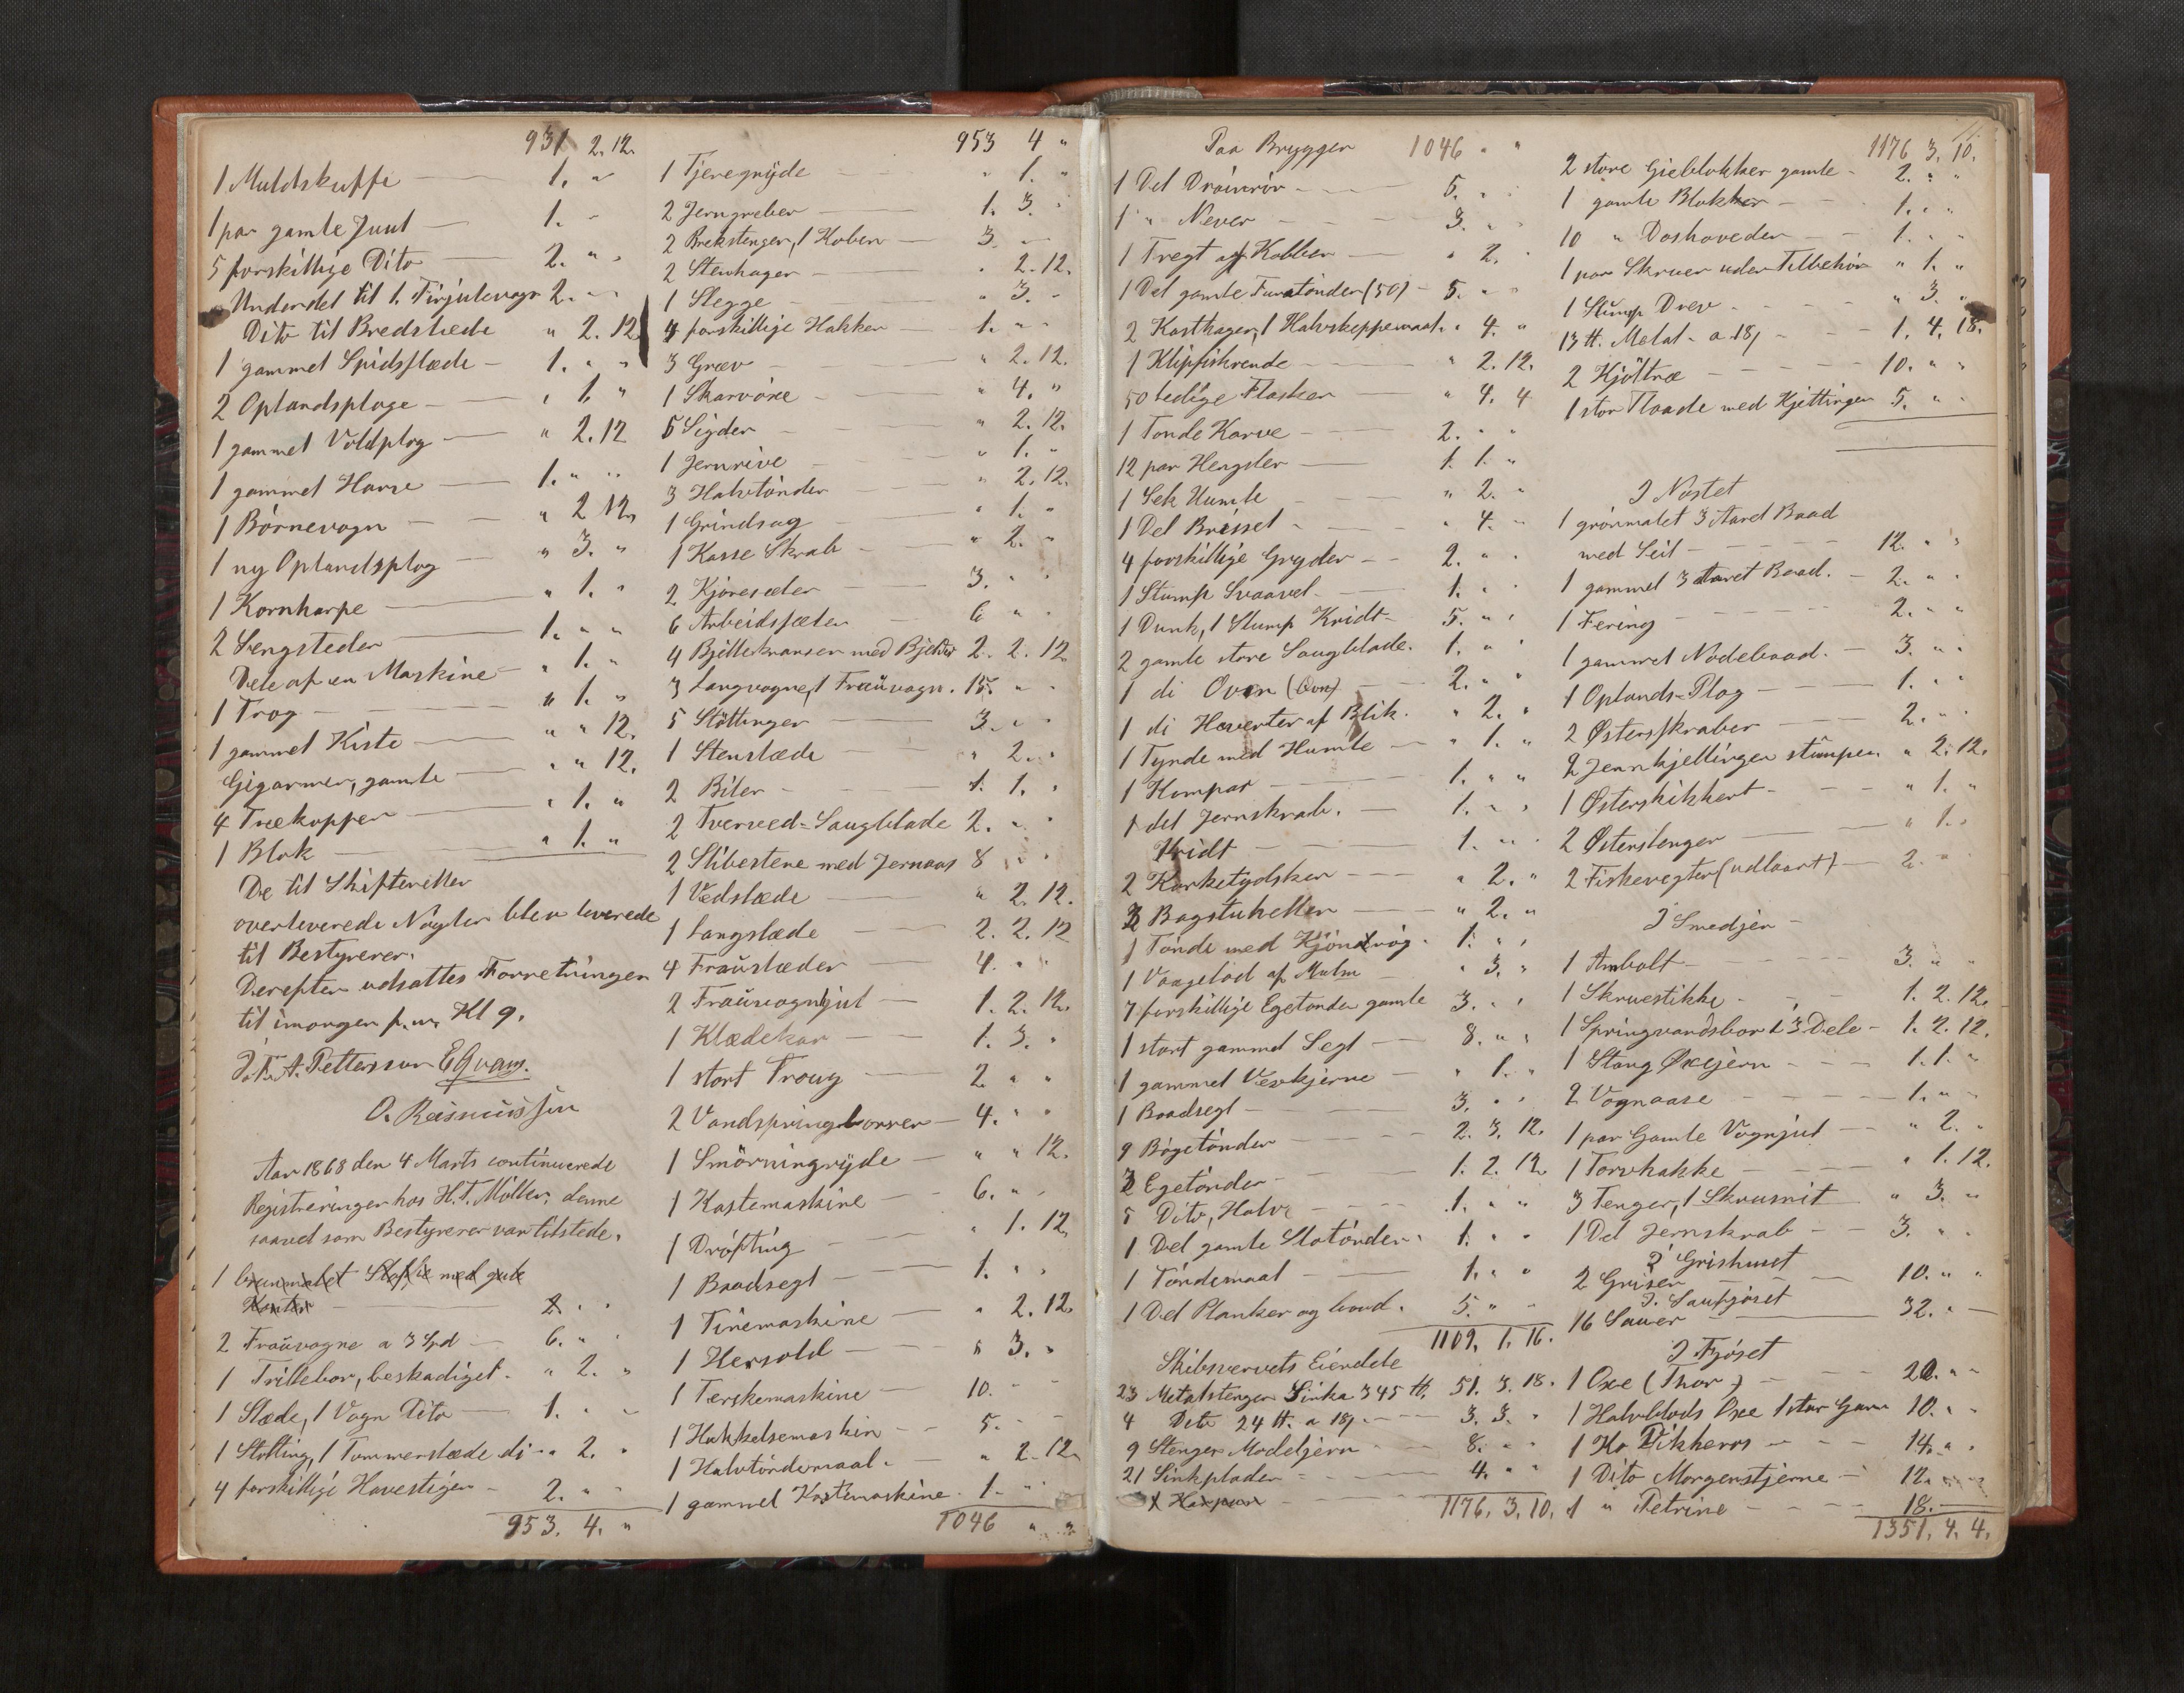 931 2. 12.
1 Muldskuffe — 1. "
1 par gamle Juul — 1. "
5 forskillige Dito — 2. " "
Underdel til 1. Firjulevogn 2. "
Dito til Bredslæde " 2. 12.
1 gammel Spidsslæde — 1. " "
2 Oplandsploge — " 1. "
1 gammel Voldplog — " 2. 12
1 gammel Harve — 1. " "
1 Börnevogn — " 2 12.
1 ny Oplandsplog — " 3. "
1 Kornharpe — " 1. "
2 Sengsteder — 1. " "
Dele af en Maskine — " 1. "
1 Trog — " 1. "
1 gammel Kiste — " " 12.
Gigarmer, gamle — " " 12.
4 Trækopper — " 1. "
1 Blok — " 1. "
De til Skifteretten
overleverede Nøgler blev leverede
til Bestyreren.
Derefter udsattes Forretningen
til imorgen f.m. Kl 9.
J. F. A. Pettersson E Qvam.
O. Rasmussen
Aar 1868 den 4 Marts continuerede
Registreringen hos H. T. Möller, denne
saavel som Bestyrerer var tilstede.
1 brunmalet Slaffe med gule
Kanter — 2. " "
2 Frauvogne a 3 Spd — 6. " "
1 Trillebor, beskadiget. " 2. "
1 Slæde, 1 Vogn Dito — 1. " "
1 Stötting, 1 Tømmerslæde di " 2. "
4 forskillige Havestiger — 2. " "
953. 4. "
953 4 "
1 Tjeregryde — " 1. "
2 Jerngreber — 1. 3. "
2 Brekstenger, 1 Koben — 3. "
2 Stenhager — " 2. 12.
1 Slegge — " 3. "
4 forskillige Hakker — 1. " "
3 Græv — " 2. 12.
1 Skarvöxe — " 4. "
5 Sigder — " 2. 12.
1 Jernrive — " 1. "
3 Halvtönder — " 2. 12.
1 Grindsag — " 1. "
1 Kasse Skrab — " 2. "
2 Kjöresæler — 3. " "
6 Arbeidssæler — 6 " "
4 Bjellekranser med Bjelder 2. 2. 12
3 Langvogne, 1 Frauvogn. 15. " "
5 Stöttinger — 3. " "
1 Stenslæde — " 2. "
2 Biler — 1. 1. "
2 Tverved-Saugblade 2. " "
2 Slibestene med Jernaas 8 " "
1 Vedslæde — " 2. 12.
1 Langslæde — 2. 2. 12
4 Frauslæder — 4. " "
2 Frauvognhjul — 1. 2. 12.
1 Klædekar — 1. 3. "
1 stort Troug — 2. " "
2 Vandspringborrer — 4. " "
1 Smörningryde — " " 12.
1 Kastemaskine — 6. " "
1 Dröfting — " 1. 12
1 Baadsegl — 1. " "
1 Tinemaskine — " 2. 12.
1 Hersold — " 3. "
1 Terskemaskine — 10. " "
1 Hakkelsemaskin — 5. " "
1 Halvtöndemaal. — " 2. 12.
1 gammel Kastemaskine. 1. " "
1046 " "
Paa Bryggen 1046 " "
1 Del Drainrör — 5. " "
1 " Never — 3. " "
1 Tregt af Kobber — " 2. "
1 Del gamle Furutönder (50) — 5. " "
2 Kasthager, 1 Halvskeppemaal. " 4. "
1 Klipfiskrende — " 2. 12.
50 ledige Flasker — " 4. 4
1 Tonde Karve — 2. " "
12 par Hengsler — 1. 1. "
1 Sek Humle — " 2. "
1 Del Brissel — " 4. "
4 forskillige Gryder — 2. " "
1 Stump Svaavel — 1. " "
1 Dunk, 1 Stump Kridt — 5. " "
2 gamle store Saugblade. 1. " "
1 di Oven (Ovn) — 2. " "
1 di Hæverter af Blik. " 2. "
1 Tynde med Humle — " 1. "
1 Kompas — 1. " "
1 del Jernskrab. — 1. " "
Kridt — 1. " "
2 Korketydsker — " 2. "
3 Bagstuheller — " 2. "
1 Tönde med Kjönrög. 1. " "
1 Vaagelod af Malm — " 3. "
7 forskillige Egetönder gamle 3. " "
1 stort gammel Segl — 8. " "
1 gammel Vevkjerne — " 1. "
1 Baadsegl — 3. " "
9 Bögetönder — 2. 3. 12.
3 Egetönder — 1. 2. 12.
5 Dito, Halve — 1. " "
1 Del gamle Slotönder. 1. " "
1 Töndemaal — 1. " "
1 Del Planker og bord. 5. " "
1109. 1. 16.
Skibsvervets Eiendele
23 Metalstenger Sinka 345 ℔. 51. 3. 18.
4 Dito 24 ℔. a 18/ — 3. 3. "
9 Stenger Modeljern — 8. " "
21 Sinkplader — 4. " "
1 Harpun —
1176. 3. 10.
11.
1176 3. 10.
2 store Gieblokker gamle — 2. " "
1 gamle Blokker — 1. " "
10 " Doshoveder — 1. " "
1 par Skruer uden Tilbehör " 1. "
1 Stump Drev — " 3. "
13 ℔. Metal a 18/ — 1. 4. 18.
2 Kjöltræ — 10. " "
1 stor Flaade med Kjettinger 5. " "
I Nöstet
1 grönmalet 3 Aaret Baad
med Seil — 12. " "
1 gammel 3 Aaret Baad. — 2. " "
1 Fering — 2. " "
1 gammel Nodebaad. — 3. " "
1 Oplands-Plog — 1. " "
2 Østersskraber — 2. " "
2 Jernkjettinger stumper " 2. 12.
1 Østerskikkert — " 1. "
2 Østerstenger — " 1. "
2 Fiskevegter (udlaant) — 2. " "
I Smedjen —
1 Ambolt — 3. " "
1 Skruestikke — 1. 2. 12.
1 Springvandsbor i 3 Dele — 1. 2. 12.
1 Stang Øxejern — 1. 1. "
2 Vognaase — 1. " "
1 par Gamle Vognjul — " 2. "
1 Torvhakke — " 1. 12.
3 Tenger, 1 Skrusnit " 3. "
1 Del Jernskrab — 3. " "
I Grishuset
2 Griser — 10. " "
I. Saufjöset
16 Sauer — 32. " —
I Fjöset
1 Oxe (Thor) — 20. " "
1 Halvblods Oxe 1 stor Gam 10. " "
1 Ko Dikkeros — 14. " "
1 Dito Morgenstjerne — 12. " "
1 " Petrine — 18. —
1351. 4. 4.